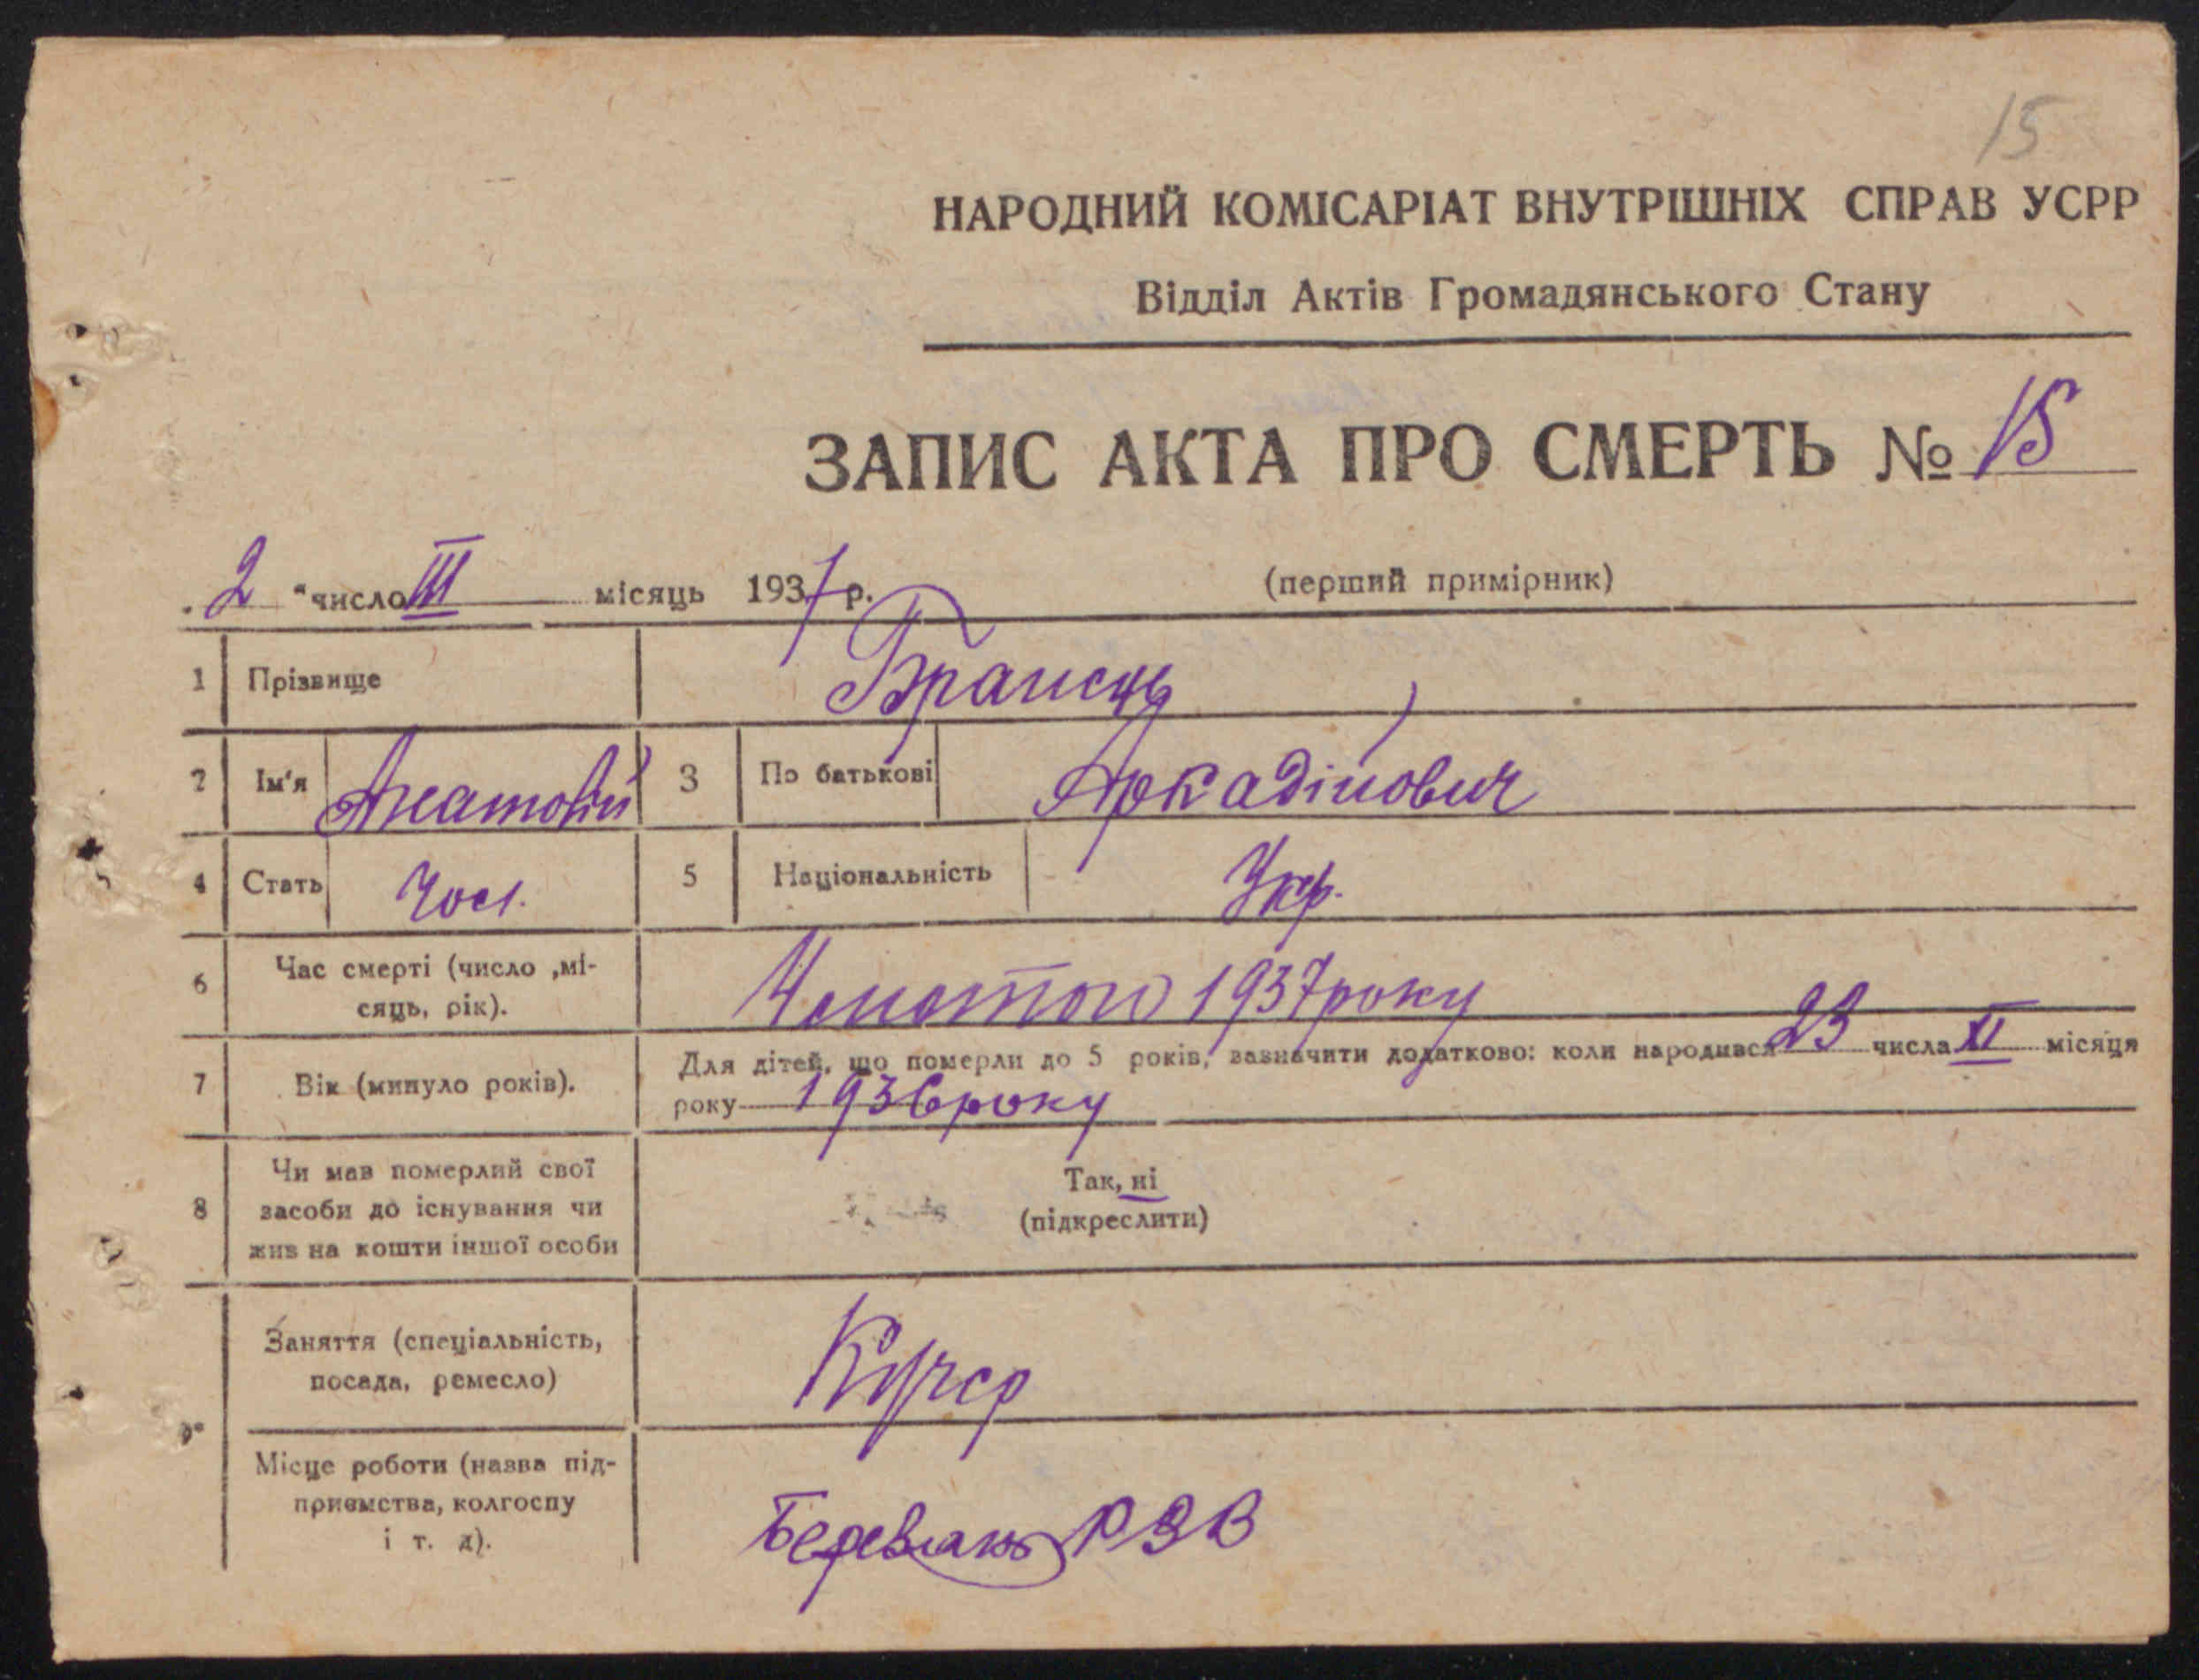 15
НАРОДНИЙ КОМІСАРІАТ ВНУТРІШНІХ СПРАВ УСРР
Відділ Актів Громадянського Стану
ЗАПИС АКТА ПРО СМЕРТЬ № 15
„ 2 “ число III місяць 1937 р. (перший примірник)
1 Прізвище
2 Ім'я Анатолій 3 По батькові Аркадійович
4 Стать Чол. 5 Національність Укр.
6 Час смерті (число ,мі-
сяць, рік). 1937 року
7 Вік (минуло років). Для дітей, що померли до 5 років, зазначити додатково: коли народився 23 числа XI місяця
року 1936 року
8 Чи мав померлий свої
засоби до існування чи
жив на кошти іншої особи
Так, ні
(підкреслити)
Заняття (спеціальність,
посада, ремесло)
Місце роботи (назва під-
приємства, колгоспу
і т. д).
РЗВ